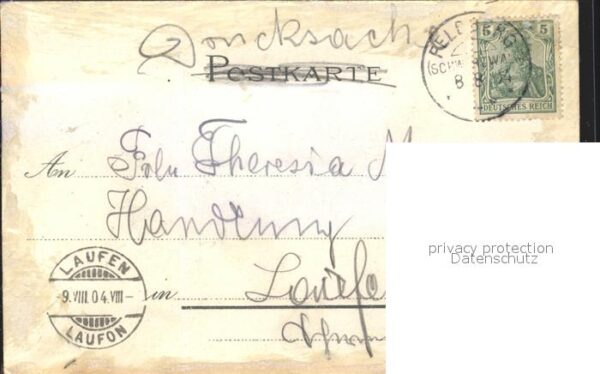 Drucksache
POSTKARTE
FELDBERG
(SCHWARZWALD)
8 8
5 5
DEUTSCHES REICH
An Frln Theresia M
Handlung
in Laufe
Schwei
LAUFEN
-9.VIII.04.VIII-
LAUFON
privacy protection
Datenschutz